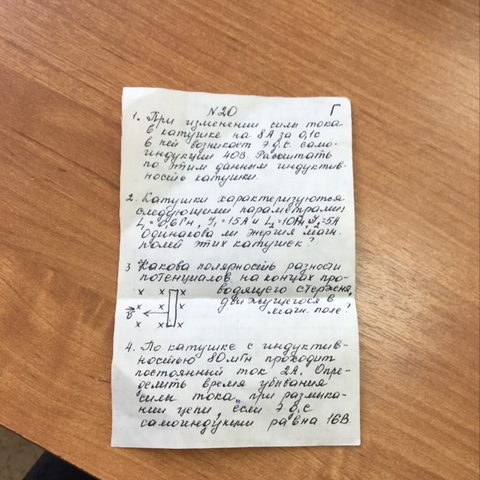 N 20 Г
1. При изменении силы тока
в катушке на 8А за 0,1с
в ней возникает э.д.с. само-
индукции 40В. Рассчитать
по этим данным индуктив-
ность катушки.
2. Катушки характеризуются
следующими параметрами:
L₁=0,6Гн, J₁=15А и L₂=10Гн, J₂=5А
Одинакова ли энергия магн.
полей этих катушек?
3 Какова полярность разности
потенциалов на концах про-
водящего стержня,
движущегося в
магн. поле?
x x x
x x
v x x
x x x
4. По катушке с индуктив-
ностью 80мГн проходит
постоянный ток 2А. Опре-
делить время убывания
силы тока при размыка-
нии цепи, если э.д.с
самоиндукции равна 16В.